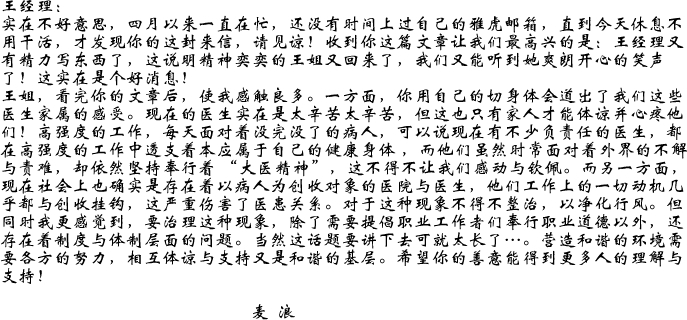 王经理：
实在不好意思，四月以来一直在忙，还没有时间上过自己的雅虎邮箱，直到今天休息不
用干活，才发现你的这封来信，请见谅！收到你这篇文章让我们最高兴的是：王经理又
有精力写东西了，这说明精神奕奕的王姐又回来了，我们又能听到她爽朗开心的笑声
了！这实在是个好消息！
王姐，看完你的文章后，使我感触良多。一方面，你用自己的切身体会道出了我们这些
医生家属的感受。现在的医生实在是太辛苦太辛苦，但这也只有家人才能体谅并心疼他
们！高强度的工作，每天面对着没完没了的病人，可以说现在有不少负责任的医生，都
在高强度的工作中透支着本应属于自己的健康身体，而他们虽然时常面对着外界的不解
与责难，却依然坚持奉行着“大医精神”，这不得不让我们感动与钦佩。而另一方面，
现在社会上也确实是存在着以病人为创收对象的医院与医生，他们工作上的一切动机几
乎都与创收挂钩，这严重伤害了医患关系。对于这种现象不得不整治，以净化行风。但
同时我更感觉到，要治理这种现象，除了需要提倡职业工作者们奉行职业道德以外，还
存在着制度与体制层面的问题。当然这话题要讲下去可就太长了…。营造和谐的环境需
要各方的努力，相互体谅与支持又是和谐的基层。希望你的善意能得到更多人的理解与
支持！
麦浪